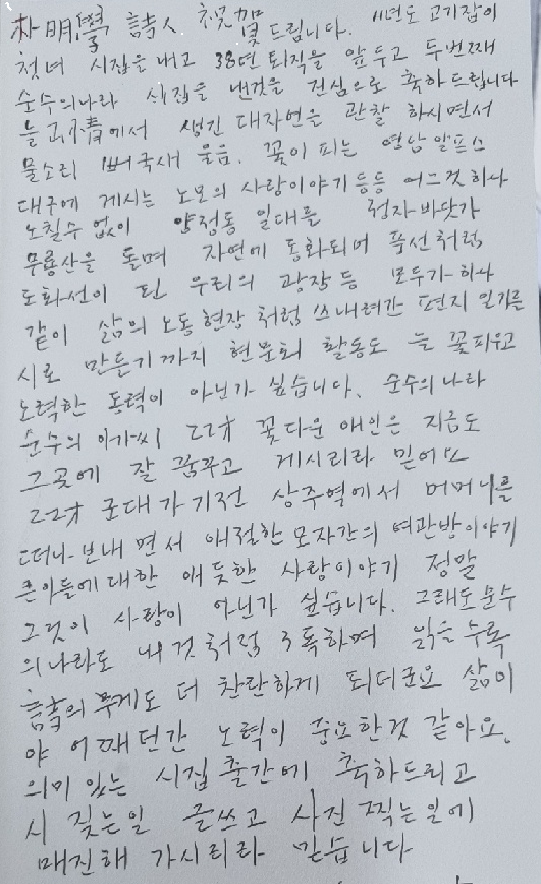 朴明學 詩人 祝賀 드립니다. 11년도 고기잡이
첫번 시집을 내고 38년 퇴직을 앞두고 두번째
순수의나라 시집을 낸것을 진심으로 축하드립니다
늘 에서 생긴 대자연을 관찰 하시면서
물소리 뻐국새 울음. 꽃이 피는 영남알프스
대구에 계시는 노모의 사랑이야기 등등 어느것 하나
노칠수 없이 양정동 일대를 정자바닷가
무룡산을 돌며 자연에 동화되며 폭선처럼
도화선이 된 우리의 광장 등 모두가 하나
같이 삶의 노동현장 처럼 쓰내려간 편지 일기를
시로 만들기까지 현문회 활동도 늘 꽃피우고
노력한 동력이 아닌가 싶습니다. 순수의 나라
순수의 아가씨 22才 꽃다운 애인은 지금도
그곳에 잘 꿈꾸고 계시리라 믿어요
22才 군대가기전 상주역에서 머머니를
떠나 보내면서 애절한 모자간의 여관방이야기
큰아들에대한 애듯한 사랑이야기 정말
그것이 사랑이 아닌가 싶습니다. 그래도 순수
의나라도 내것처럼 3독하며 읽을수록
의 무게도 더 찬란하게 되더군요 삶이
야 어째던간 노력이 중요한것 같아요.
의미 있는 시집출간에 축하드리고
시 짖는일 글쓰고 사진 찍는일에
매진해 가시리라 믿습니다